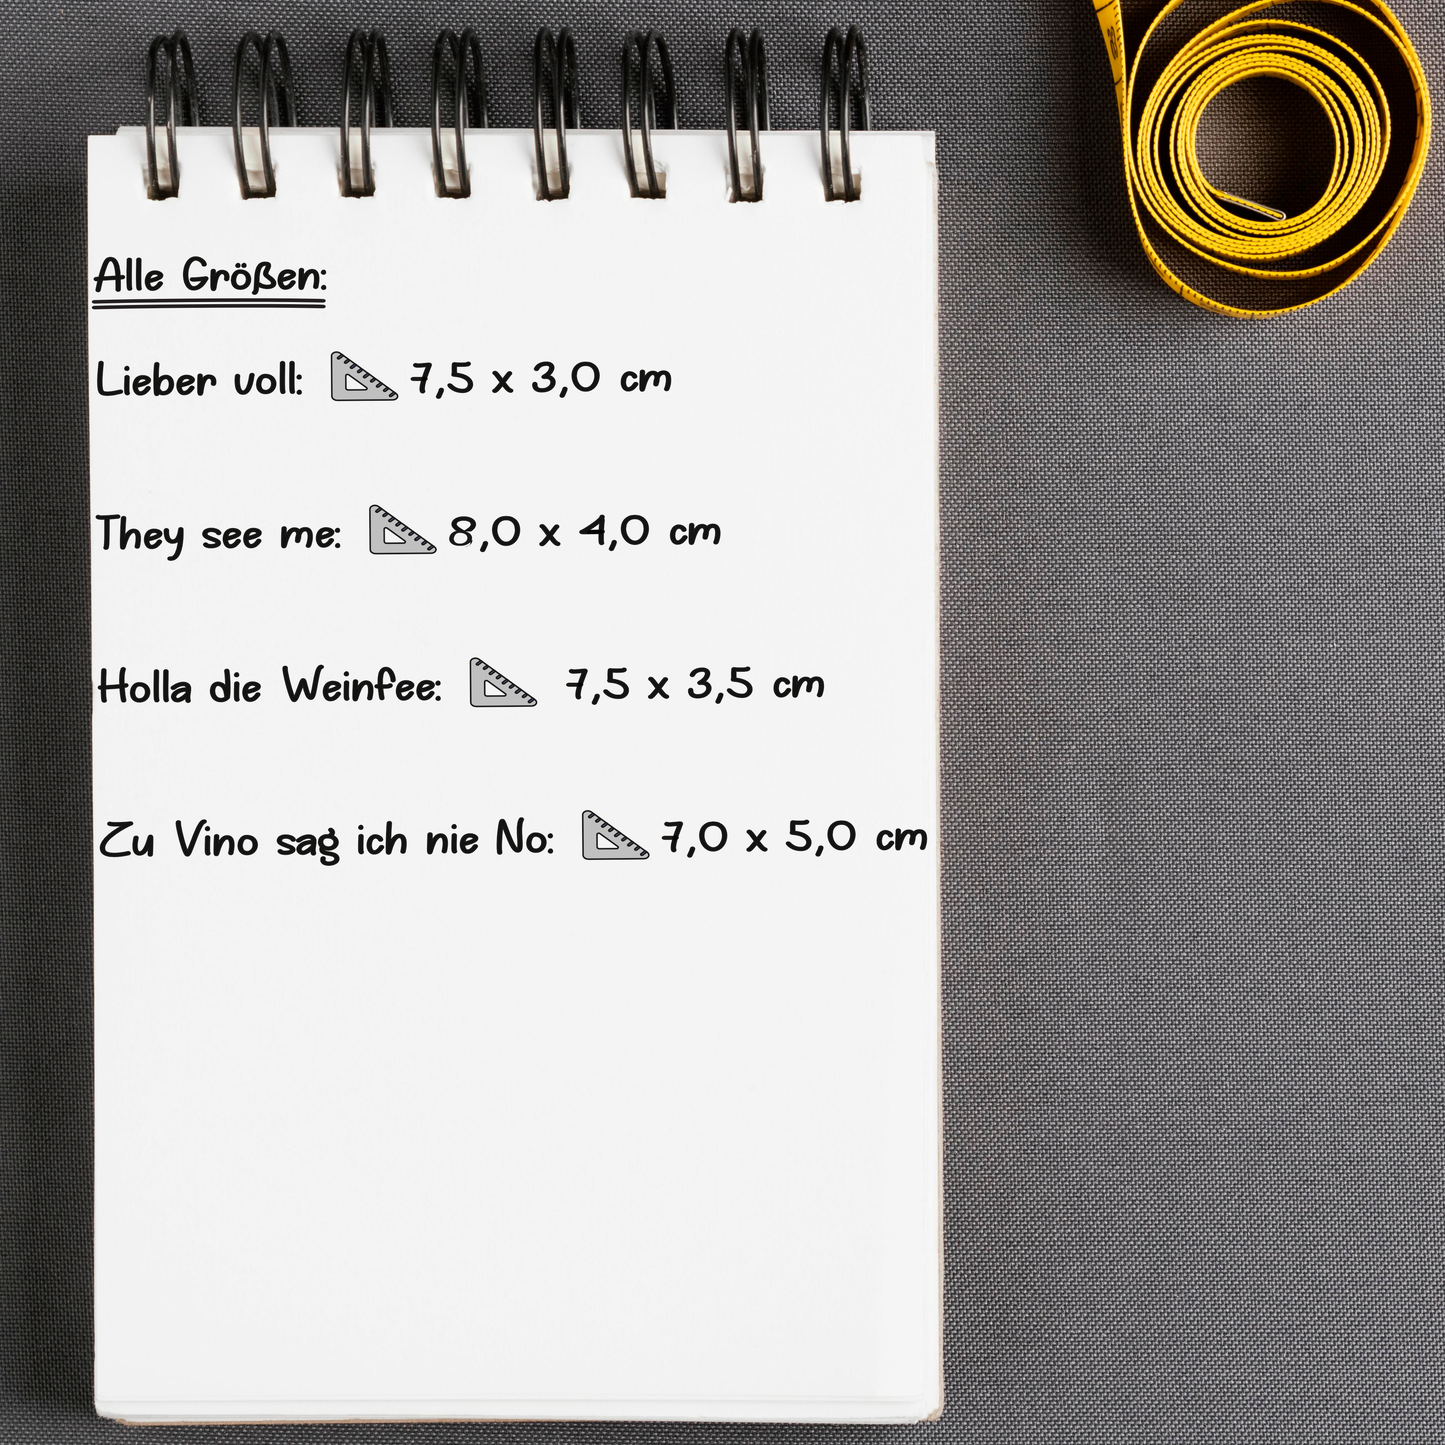 Alle Größen:
Lieber voll: 7,5 x 3,0 cm
They see me: 8,0 x 4,0 cm
Holla die Weinfee: 7,5 x 3,5 cm
Zu Vino sag ich nie No: 7,0 x 5,0 cm